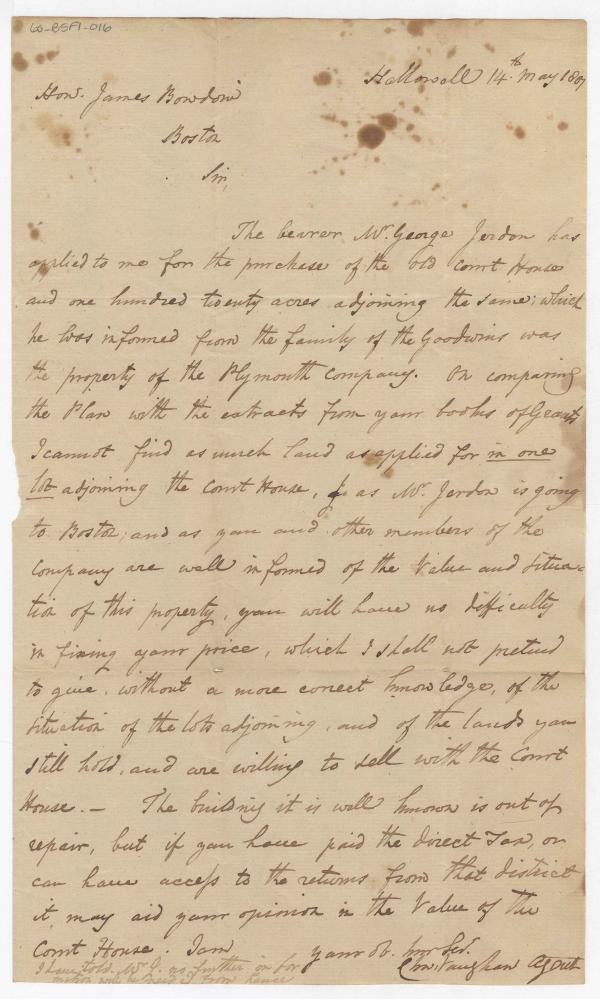 66-BSF1-016
Hallowell 14th May 1801
Hon. James Bowdoin
Boston
Sir,
The bearer Mr. George Jerdon has
applied to me for the purchase of the old Court House
and one hundred twenty acres adjoining the same; which
he was informed from the family of the Goodwins was
the property of the Plymouth Company. On comparing
the Plan with the extracts from your books of Grants
I cannot find as much land as applied for in one
lot adjoining the Court House, as Mr. Jerdon is going
to Boston, and as you and other members of the
Company are well informed of the Value and Situa-
tion of this property, you will have no difficulty
in fixing your price, which I shall not pretend
to give, without a more correct knowledge, of the
situation of the lots adjoining, and of the lands you
still hold, and are willing to sell with the Court
House. — The building it is well known is out of
repair, but if you have paid the direct Tax, or
can have access to the returns from that district
it may aid your opinion in the Value of the
Court House. I am your ob. hm Ser.
Chs. Vaughan Agent
I have told Mr. J. no further infor
mation will be need'd from hence